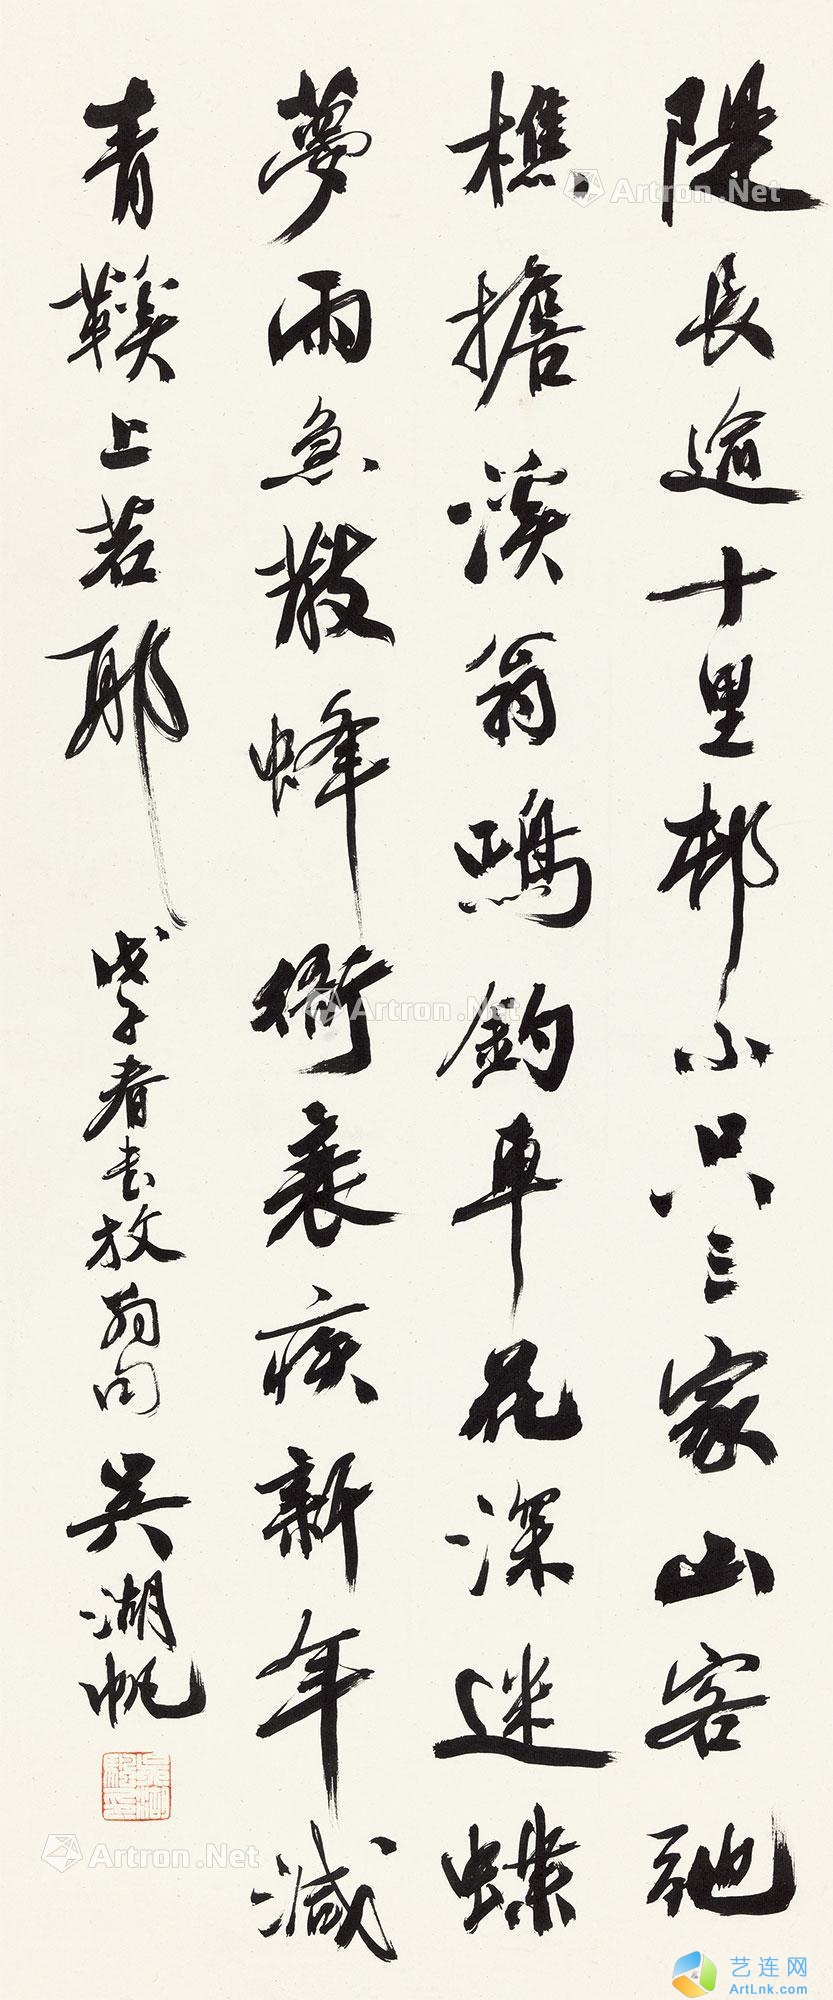 隄長逾十里邨小只三家山客弛
樵擔溪翁鳴釣車花深迷蝶
夢雨急散蜂衙衰疾新年減
青鞵上若耶
戊子春去放翁句 吳湖帆
Artron.Net
Artron.Net
Artron.Net
艺连网
ArtLnk.com